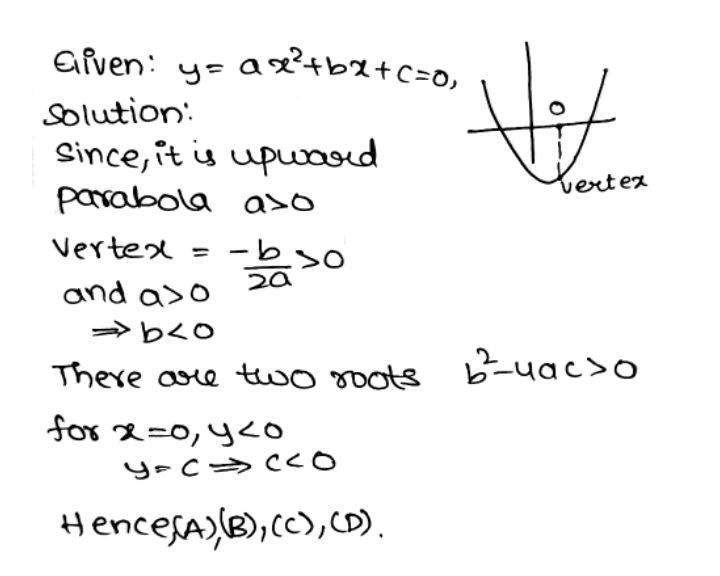 Given: y = ax²+bx+c=0,
Solution:
Since, it is upward
parabola a>0
Vertex = -b/2a >0
and a>0
⇒ b<0
There are two roots b²-4ac>0
for x=0, y<0
y=c ⇒ c<0
Hence,(A),(B),(C),(D).
0
vertex